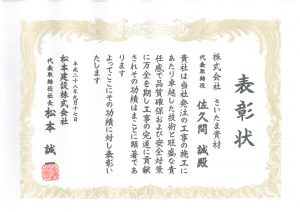 表彰状
株式会社 さいたま資材
代表取締役 佐久間 誠殿
貴社は当社発注の工事の施工に
あたり卓越した技術と旺盛な責
任感で品質確保および安全対策
に万全を期し工事の完遂に貢献
されその功績はまことに顕著であ
ります
よってここにその功績に対し表彰い
たします
平成二十八年九月十七日
松本建設株式会社
代表取締役社長 松本 誠一